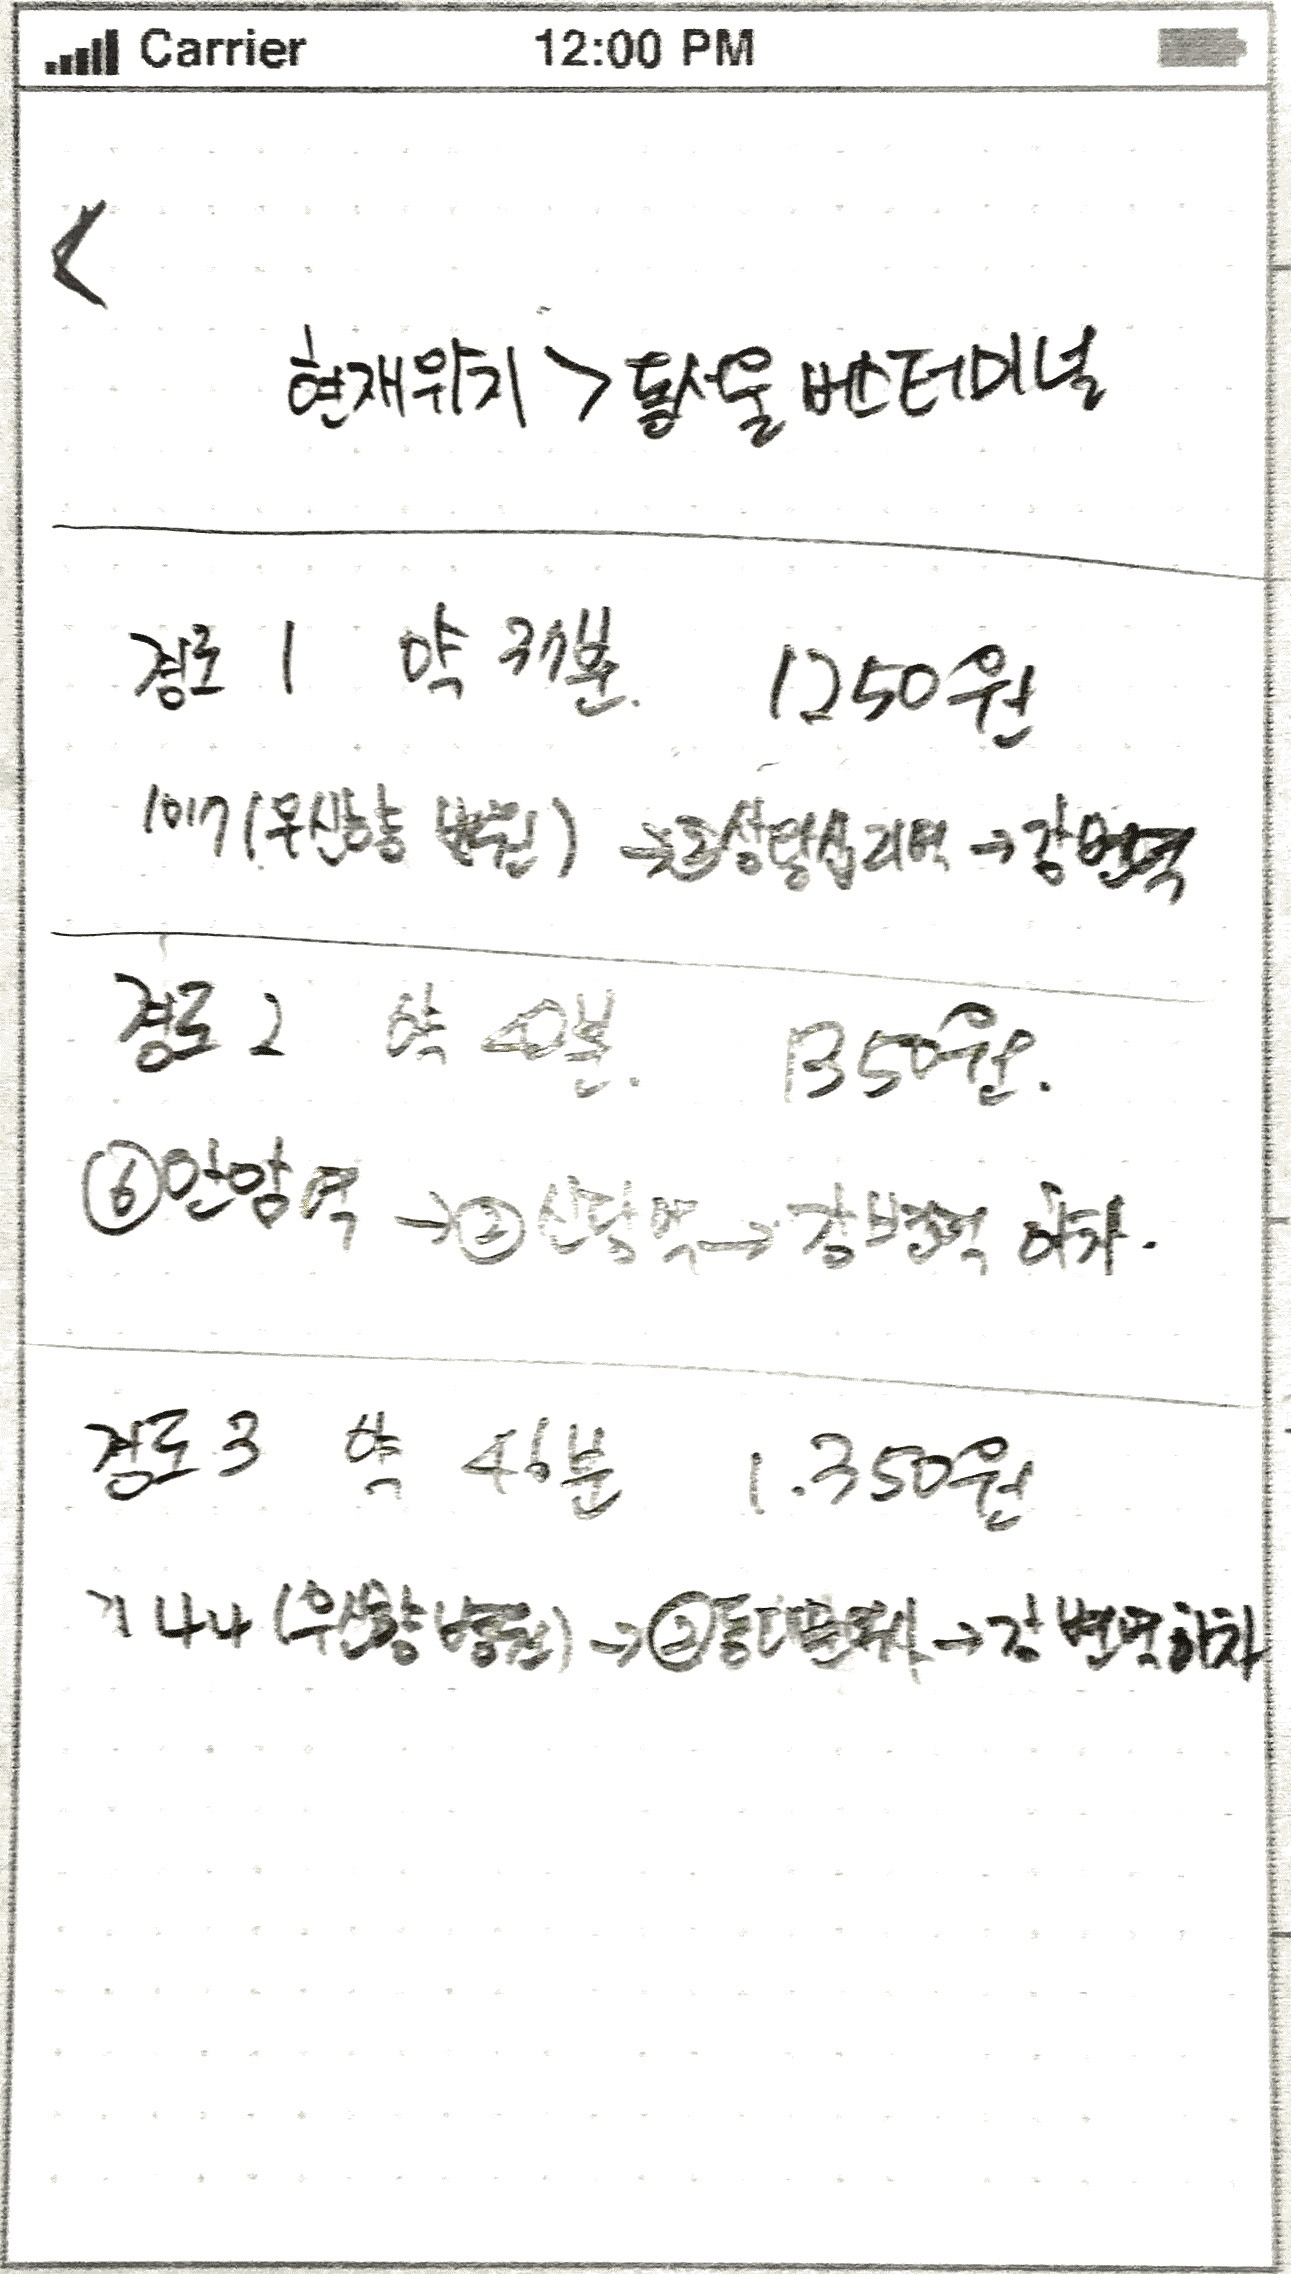 Carrier 12:00 PM
<
현재위치 > 동서울 버스터미널
경로 1 약 37분. 1250원
1017 (우신향병원) → ② 상왕십리역 → 강변역
경로 2 약 40분. 1350원.
⑥ 안암역 → ② 신당역 → 강변역 하차.
경로 3 약 46분 1.350원
(우신향병원) → ② 동대문역사 → 강변역하차